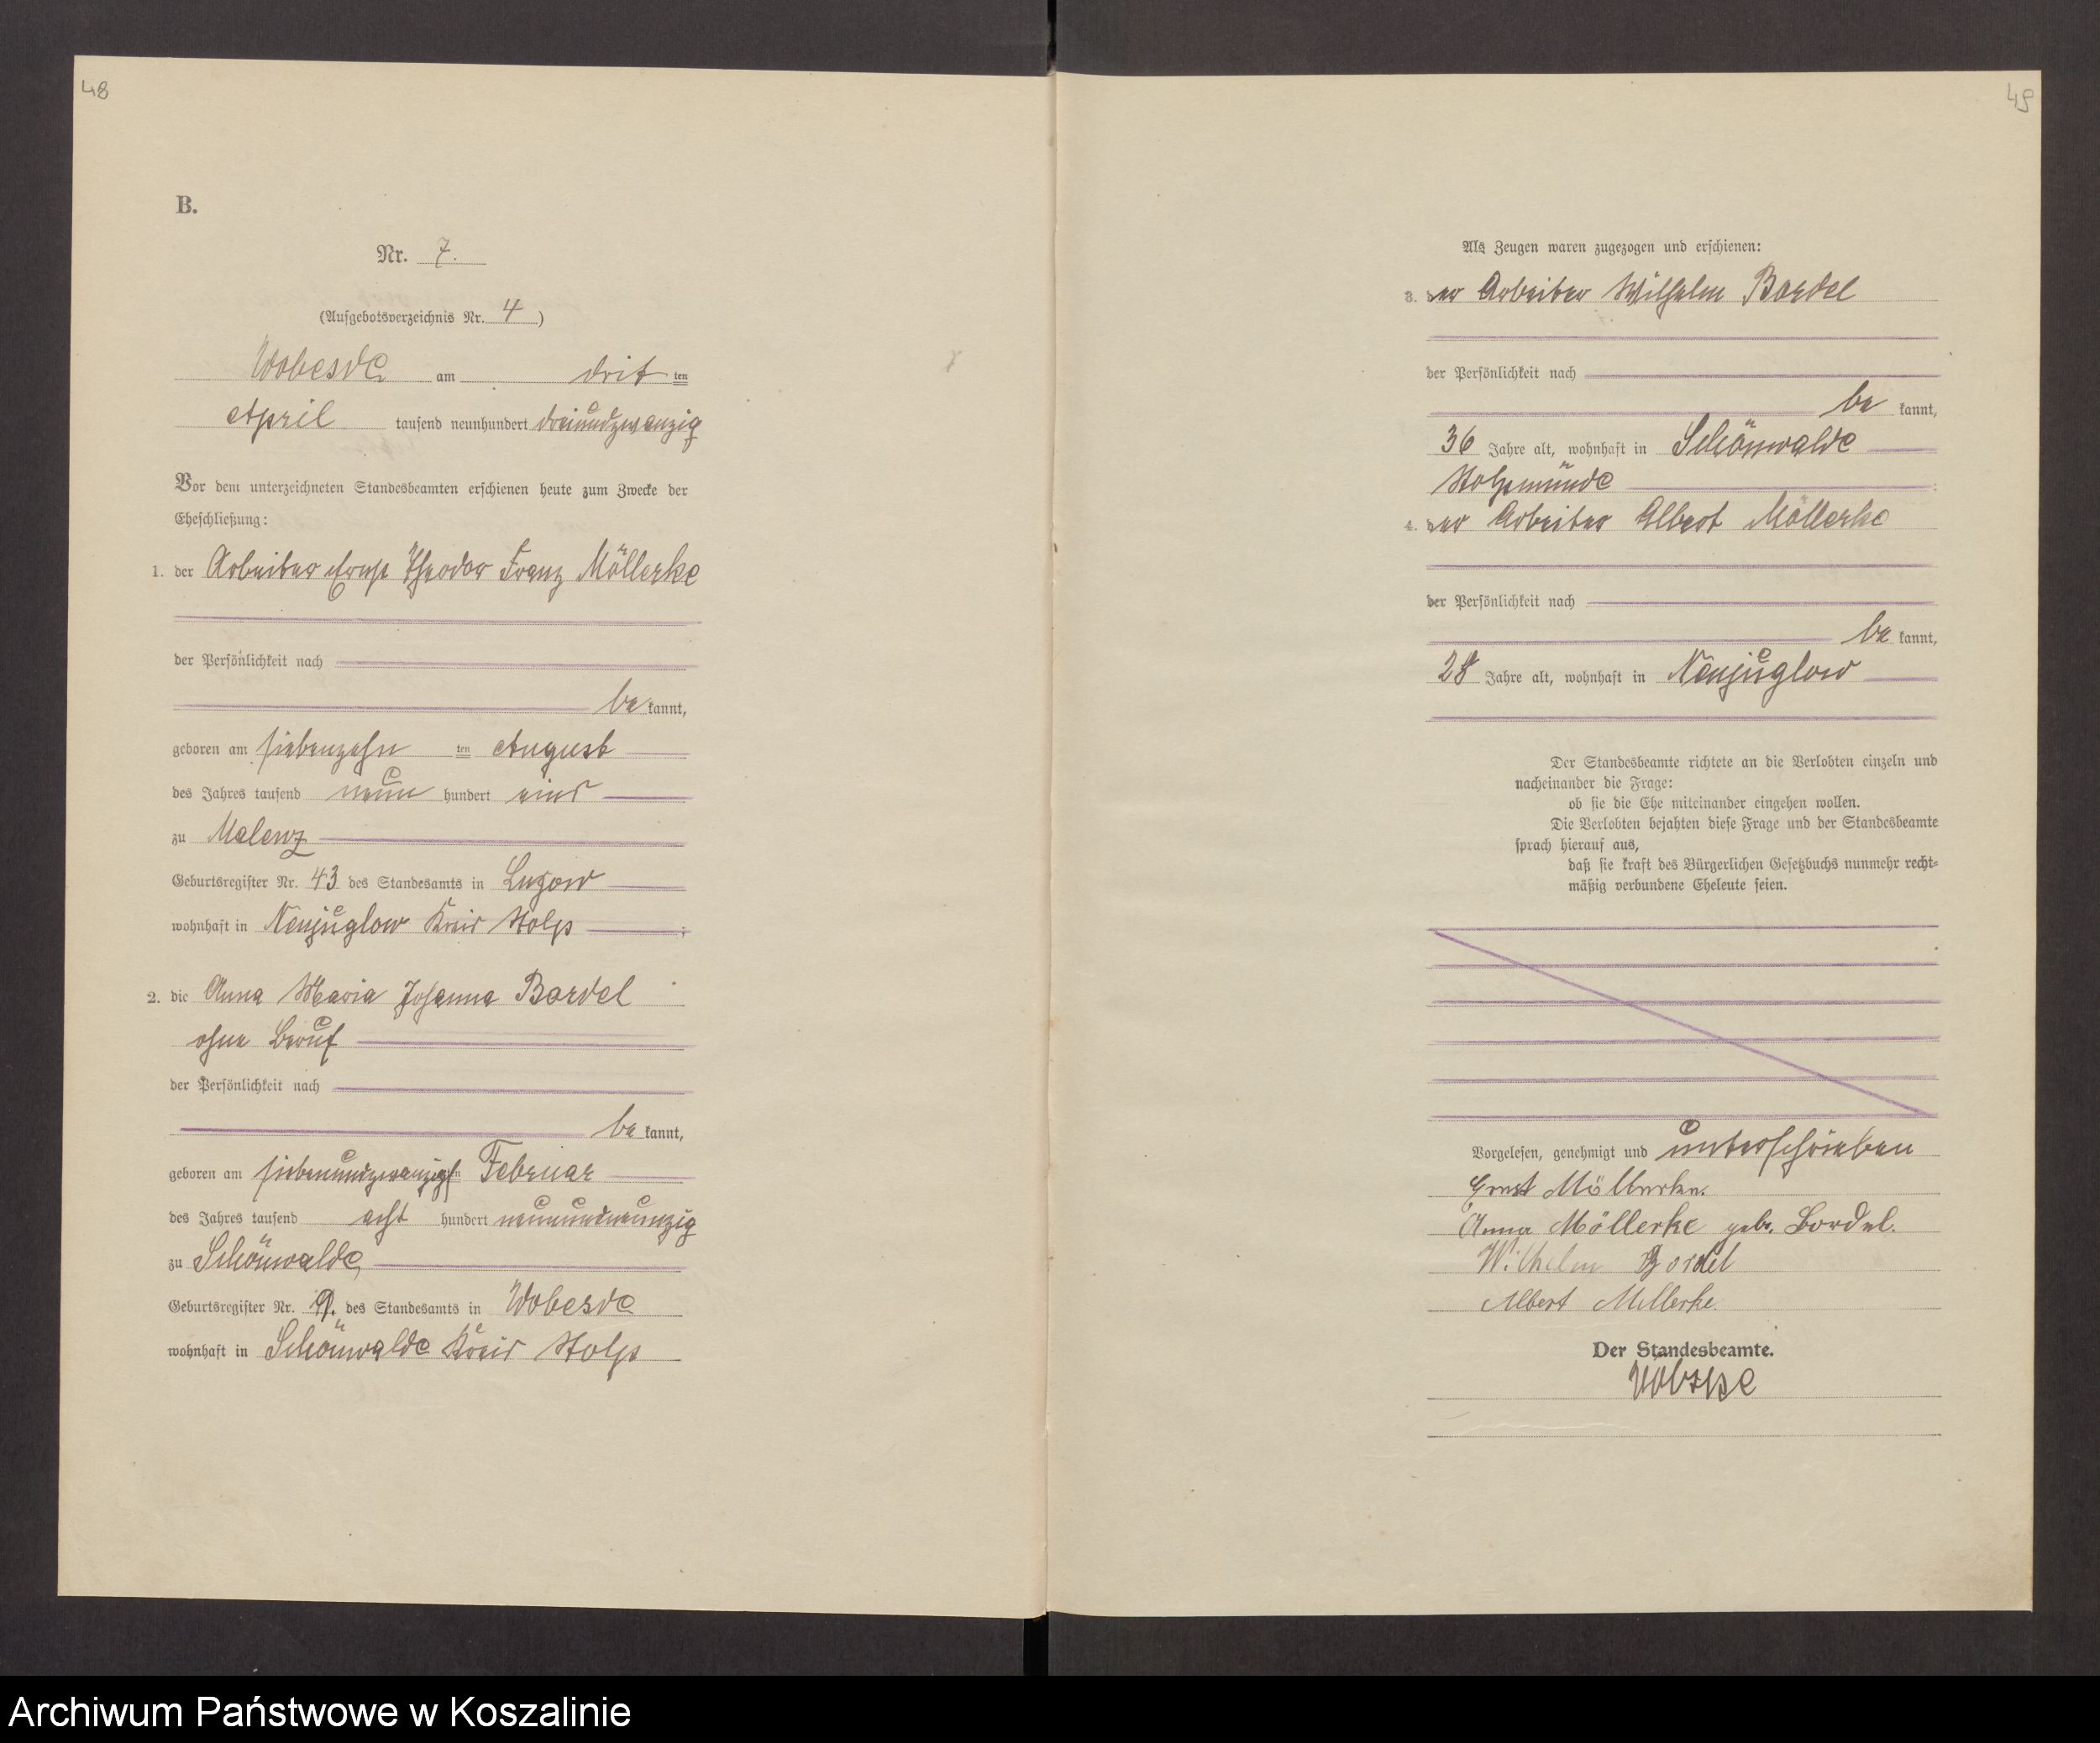 48
B.
Nr. 7.
(Aufgebotsverzeichnis Nr. 4)
Wobesde am drit ten
April tausend neunhundert dreiundzwanzig
Vor dem unterzeichneten Standesbeamten erschienen heute zum Zwecke der
Eheschließung:
1. der Arbeiter Ernst Theodor Franz Möllerke
der Persönlichkeit nach
be kannt,
geboren am siebenzehn ten August
des Jahres tausend neun hundert eins
zu Malenz
Geburtsregister Nr. 43 des Standesamts in
wohnhaft in Neujuglow Kreis Stolp ;
2. die Anna Maria Johanna Bordel
ohne Beruf
der Persönlichkeit nach
be kannt,
geboren am siebenundzwanzigsten Februar
des Jahres tausend acht hundert neunundneunzig
zu Schönwalde
Geburtsregister Nr. 9. des Standesamts in Wobesde
wohnhaft in Schönwalde Kreis Stolp
49
Als Zeugen waren zugezogen und erschienen:
3. der Arbeiter Wilhelm Bordel
der Persönlichkeit nach
be kannt,
36 Jahre alt, wohnhaft in Schönwalde
Stolpmünde ;
4. der Arbeiter Albert Möllerke
der Persönlichkeit nach
be kannt,
28 Jahre alt, wohnhaft in Neujuglow
Der Standesbeamte richtete an die Verlobten einzeln und
nacheinander die Frage:
ob sie die Ehe miteinander eingehen wollen.
Die Verlobten bejahten diese Frage und der Standesbeamte
sprach hierauf aus,
daß sie kraft des Bürgerlichen Gesetzbuchs nunmehr recht-
mäßig verbundene Eheleute seien.
Vorgelesen, genehmigt und unterschrieben
Ernst Möllerke.
Anna Möllerke geb. Bordel.
Wilhelm Bordel
Albert Mellerke.
Der Standesbeamte.
Archiwum Państwowe w Koszalinie